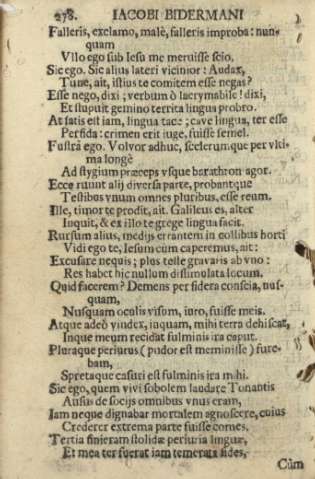 278. IACOBI BIDERMANI
Falleris, exclamo, malè, falleris improba: nun-
quam
Vllo ego sub Iesu me meruisse scio.
Sic ego. Sic alius lateri vicinior: Audax,
Tune, ait, istius te comitem esse negas?
Esse nego, dixi; verbum ô lacrymabile! dixi,
Et stupuit gemino territa lingua probro.
At satis est iam, lingua tace; cave lingua, ter esse
Perfida: crimen erit iuge, fuisse semel.
Fustrà ego. Volvor adhuc, scelerumque per vlti-
ma longè
Ad stygium præceps vsque barathron agor.
Ecce ruunt alij diversa parte, probantque
Testibus vnum omnes pluribus, esse reum.
Ille, timor te prodit, ait. Galileus es, alter
Inquit, & ex illo te grege lingua facit.
Rursum alius, medijs errantem in collibus horti
Vidi ego te, Iesum cùm caperemus, ait:
Excusare nequis; plus teste gravaris ab vno:
Res habet hic nullum dissimulata locum.
Quid facerem? Demens per sidera conscia, nus-
quam,
Nusquam oculis visum, iuro, fuisse meis.
Atque adeò vindex, inquam, mihi terra dehiscat,
Inque meum recidat fulminis ira caput.
Pluraque periurus (pudor est meminisse) fure-
bam,
Spretaque casuri est fulminis ira mihi.
Sic ego, quem vivi sobolem laudare Tonantis
Ausus de socijs omnibus vnus eram,
Iam neque dignabar mortalem agnoscere, cuius
Crederer extrema parte fuisse comes.
Tertia finieram stolidæ periuria linguæ,
Et mea ter fuerat iam temerata fides,
Cùm